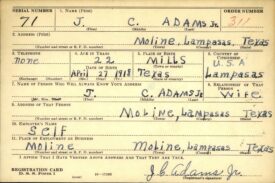 SERIAL NUMBER 1. NAME (Print) ORDER NUMBER
71 J. C. ADAMS Jr. 311
2. ADDRESS (Print)
Moline, Lampasas, Texas
3. TELEPHONE 4. AGE IN YEARS 5. PLACE OF BIRTH 6. COUNTRY OF CITIZENSHIP
None 22 MILLS U.S.A
DATE OF BIRTH
April 27 1918 Texas Lampasas
7. NAME OF PERSON WHO WILL ALWAYS KNOW YOUR ADDRESS
J. C. ADAMS Jr. Wife
9. ADDRESS OF THAT PERSON
Moline, Lampasas, Texas
10. EMPLOYER'S NAME
Self
11. PLACE OF EMPLOYMENT OR BUSINESS
Moline Moline, Lampasas, Texas
I AFFIRM THAT I HAVE VERIFIED ABOVE ANSWERS AND THAT THEY ARE TRUE.
REGISTRATION CARD
D. S. S. FORM 1
J C Adams Jr.